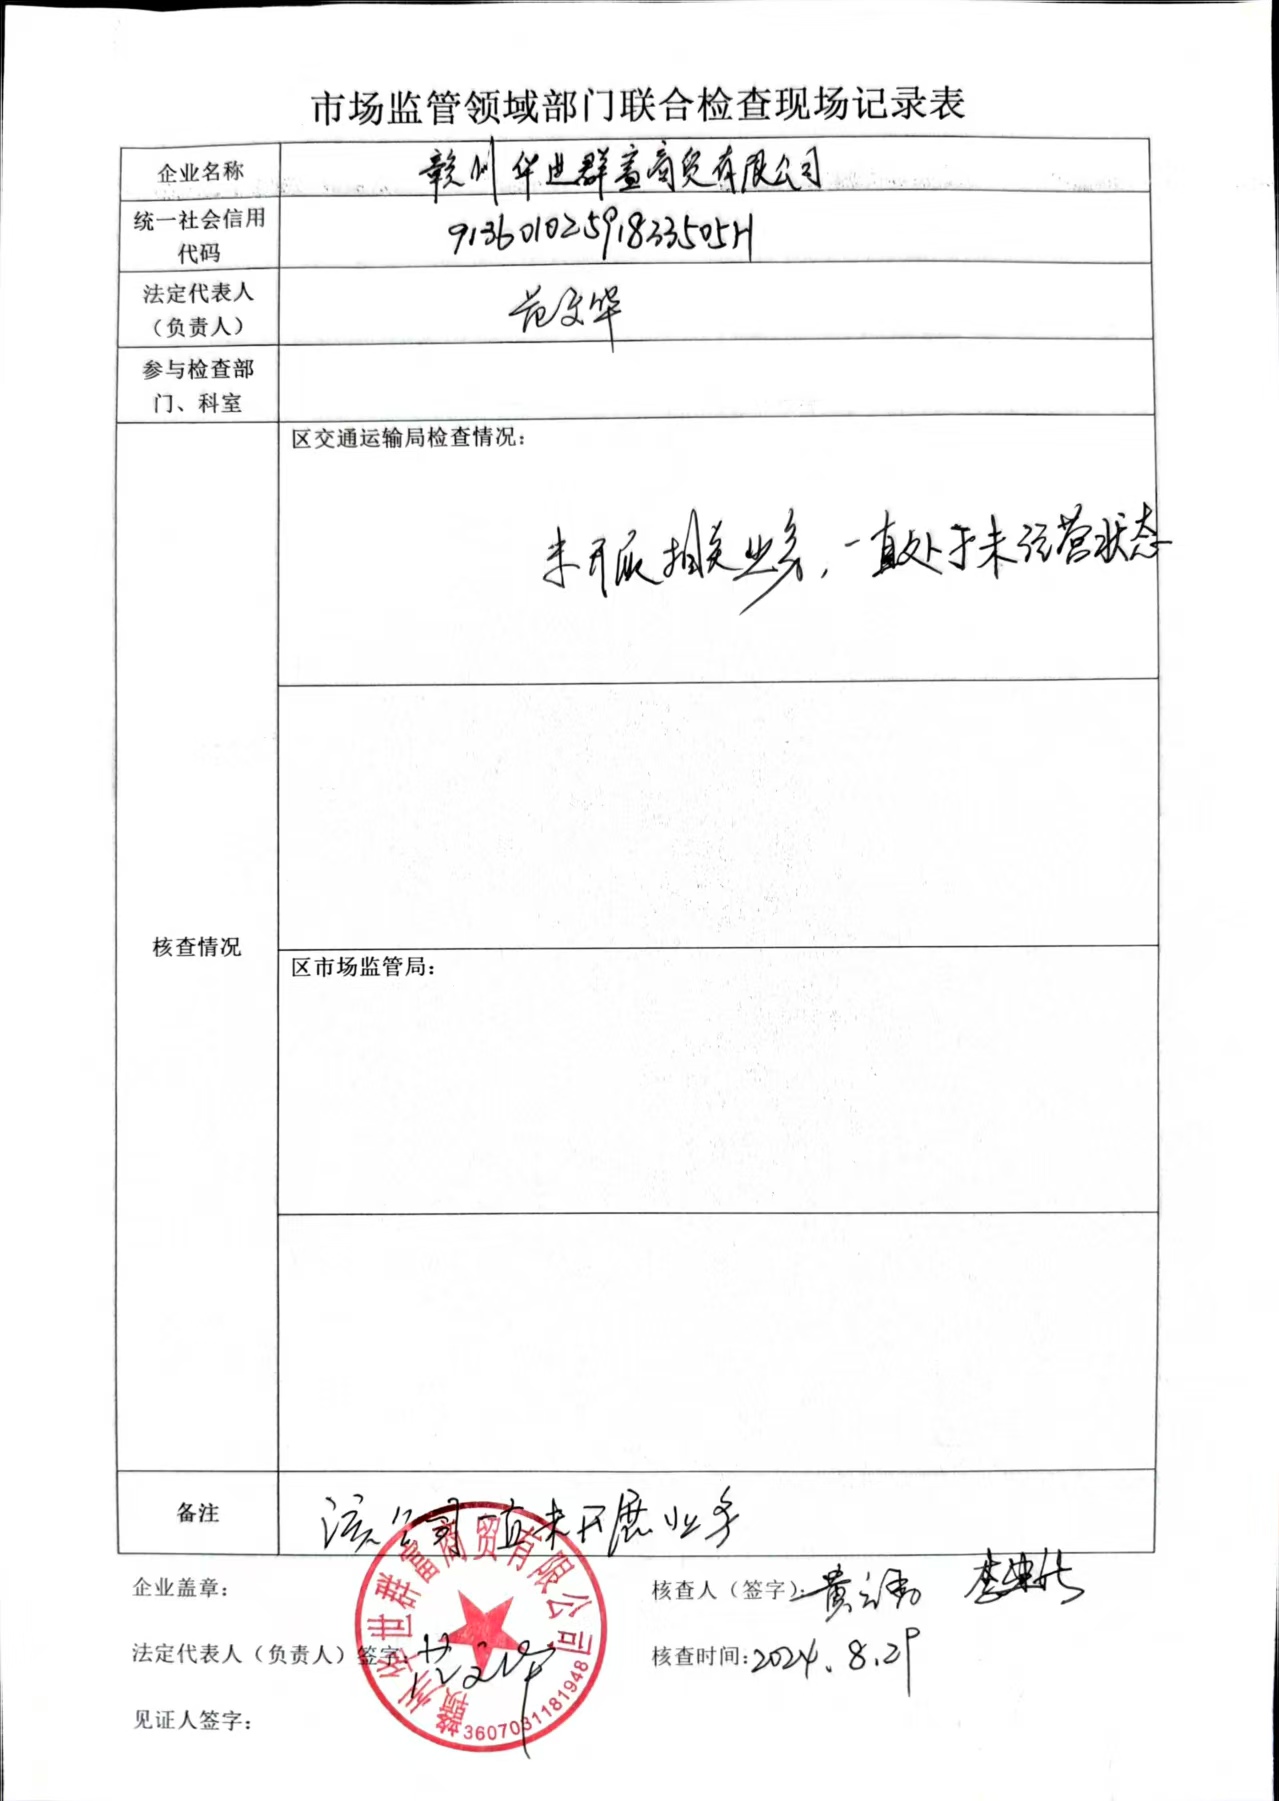 市场监管领域部门联合检查现场记录表
企业名称
赣州华世群富商贸有限公司
统一社会信用
代码
91360102591833505H
法定代表人
（负责人）
范文华
参与检查部
门、科室
区交通运输局检查情况：
未开展相关业务，一直处于未经营状态
核查情况
区市场监管局：
备注
该公司一直未开展业务
企业盖章：
核查人（签字）：
法定代表人（负责人）签字：范文华
核查时间：2024.8.29
见证人签字：
赣州华世群富商贸有限公司
3607031181948